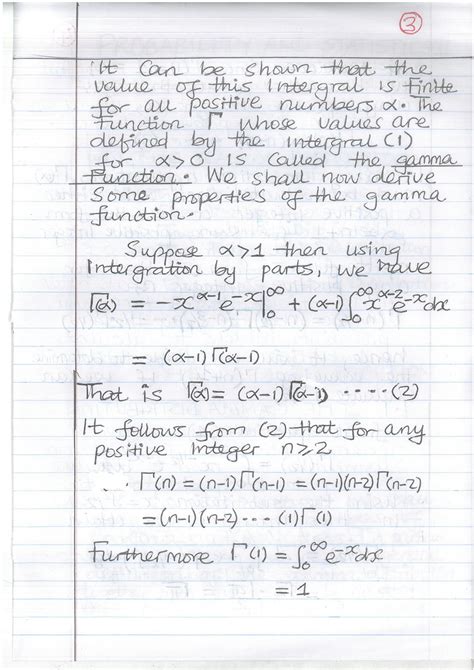 3
It Can be shown that the
value of this Intergral is Finite
for all positive numbers α. The
Function Γ whose values are
defined by the intergral (1)
for α>0 is Called the gamma
Function. We shall now derive
Some properties of the gamma
function.
Suppose α>1 then using
Intergration by parts, we have
Γ(α) = -x^{α-1}e^{-x}|_0^∞ + (α-1)∫_0^∞ x^{α-2}e^{-x}dx
= (α-1)Γ(α-1)
That is Γ(α) = (α-1)Γ(α-1) ---- (2)
It follows from (2) that for any
positive Integer n≥2
∴ Γ(n) = (n-1)Γ(n-1) = (n-1)(n-2)Γ(n-2)
= (n-1)(n-2) --- (1)Γ(1)
Furthermore Γ(1) = ∫_0^∞ e^{-x}dx
= 1